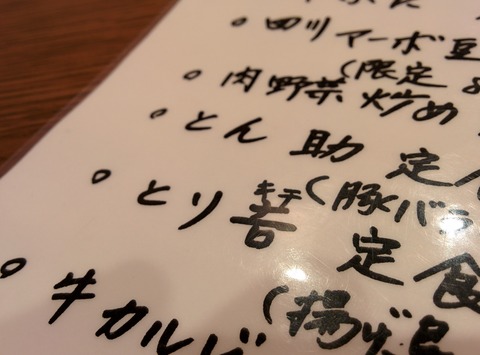 四川マーボ豆
(限定
○ 肉野菜炒め
○ とん助定
(豚バラ
○ とり キチ 吉 定食
(揚げ鳥
○ 牛カルビ